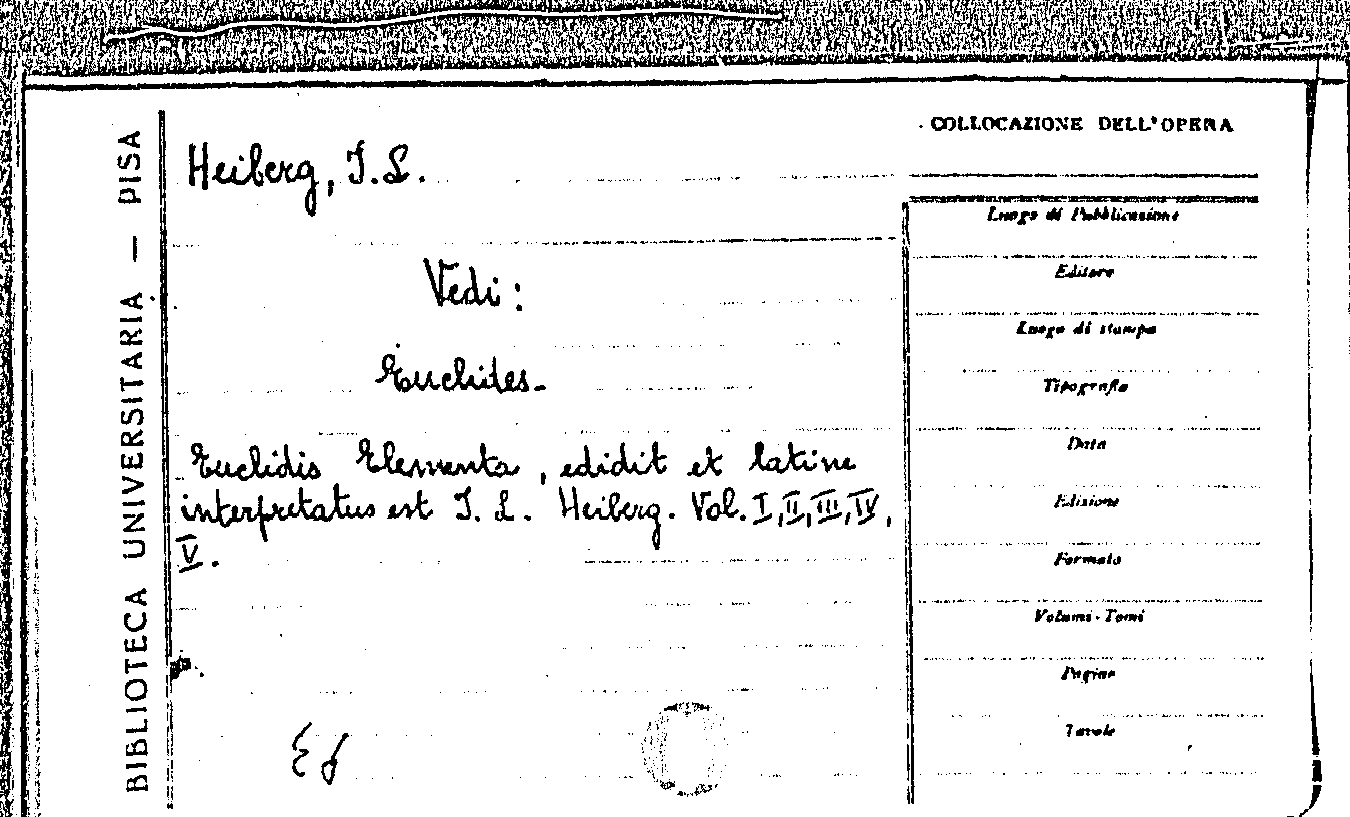 BIBLIOTECA UNIVERSITARIA — PISA
Heiberg, J. L.
Vedi:
Euclides-
Euclidis Elementa, edidit et latine
interpretatus est J. L. Heiberg. Vol. I, II, III, IV,
V.
COLLOCAZIONE DELL'OPERA
Luogo di Pubblicazione
Editore
Luogo di stampa
Tipografia
Data
Edizione
Formato
Volumi - Tomi
Pagine
Tavole